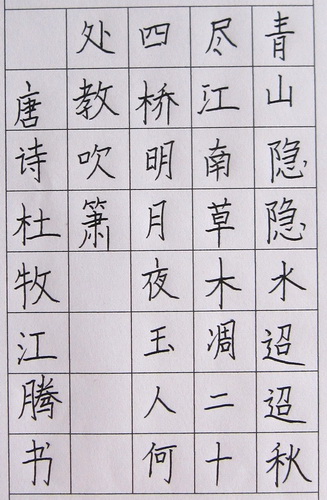 青山隐隐水迢迢秋
尽江南草木凋二十
四桥明月夜玉人何
处教吹箫
唐诗杜牧江腾书